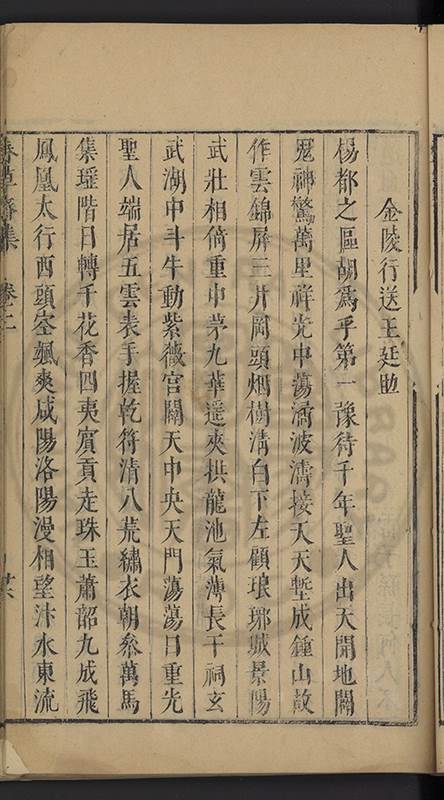 金陵行送王廷助
楊都之區胡爲乎第一豫待千年聖人出天開地闢
鬼神驚萬里祥光中蕩潏波濤接天天塹成鍾山故
作雲錦屏三井岡頭烟樹淸白下左顧琅琊城景陽
武壯相倚重中茅九華遥夾拱龍池氣薄長干祠玄
武湖中斗牛動紫薇宮闕天中央天門蕩蕩日重光
聖人端居五雲表手握乾符淸八荒繡衣朝叅萬馬
集瑶階日轉千花香四夷賓貢走珠玉蕭韶九成飛
鳳凰太行西頭崟颯爽咸陽洛陽漫相望汴水東流